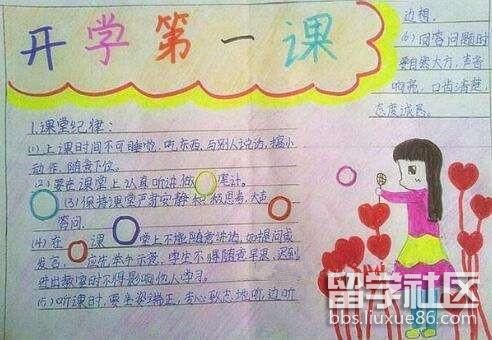 开学第一课
1.课堂纪律:
(1)上课时间不可睡觉,吃东西,与别人说话,搞小
动作,随意下位。
(2)要在课堂上认真听讲,做 笔记。
(3)保持课堂严肃安静,积极思考,大声
答问。
(4)在 课 堂上不能随意讲话,如提问或
发言, 应先举手示意,学生不得随意早退,迟到
进出教室时不得影响他人学习。
(5)听课时,要坐姿端正,专心致志地听,边听
边想。
(6)回答问题时
要自然大方,声音
响亮,口齿清楚,
态度诚恳。
留学社区
bbs.liuxue86.com